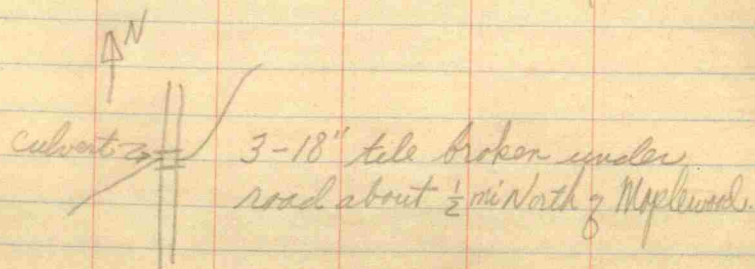 N
culvert
3-18" tile broken under
road about ½ mi North of Maplewood.